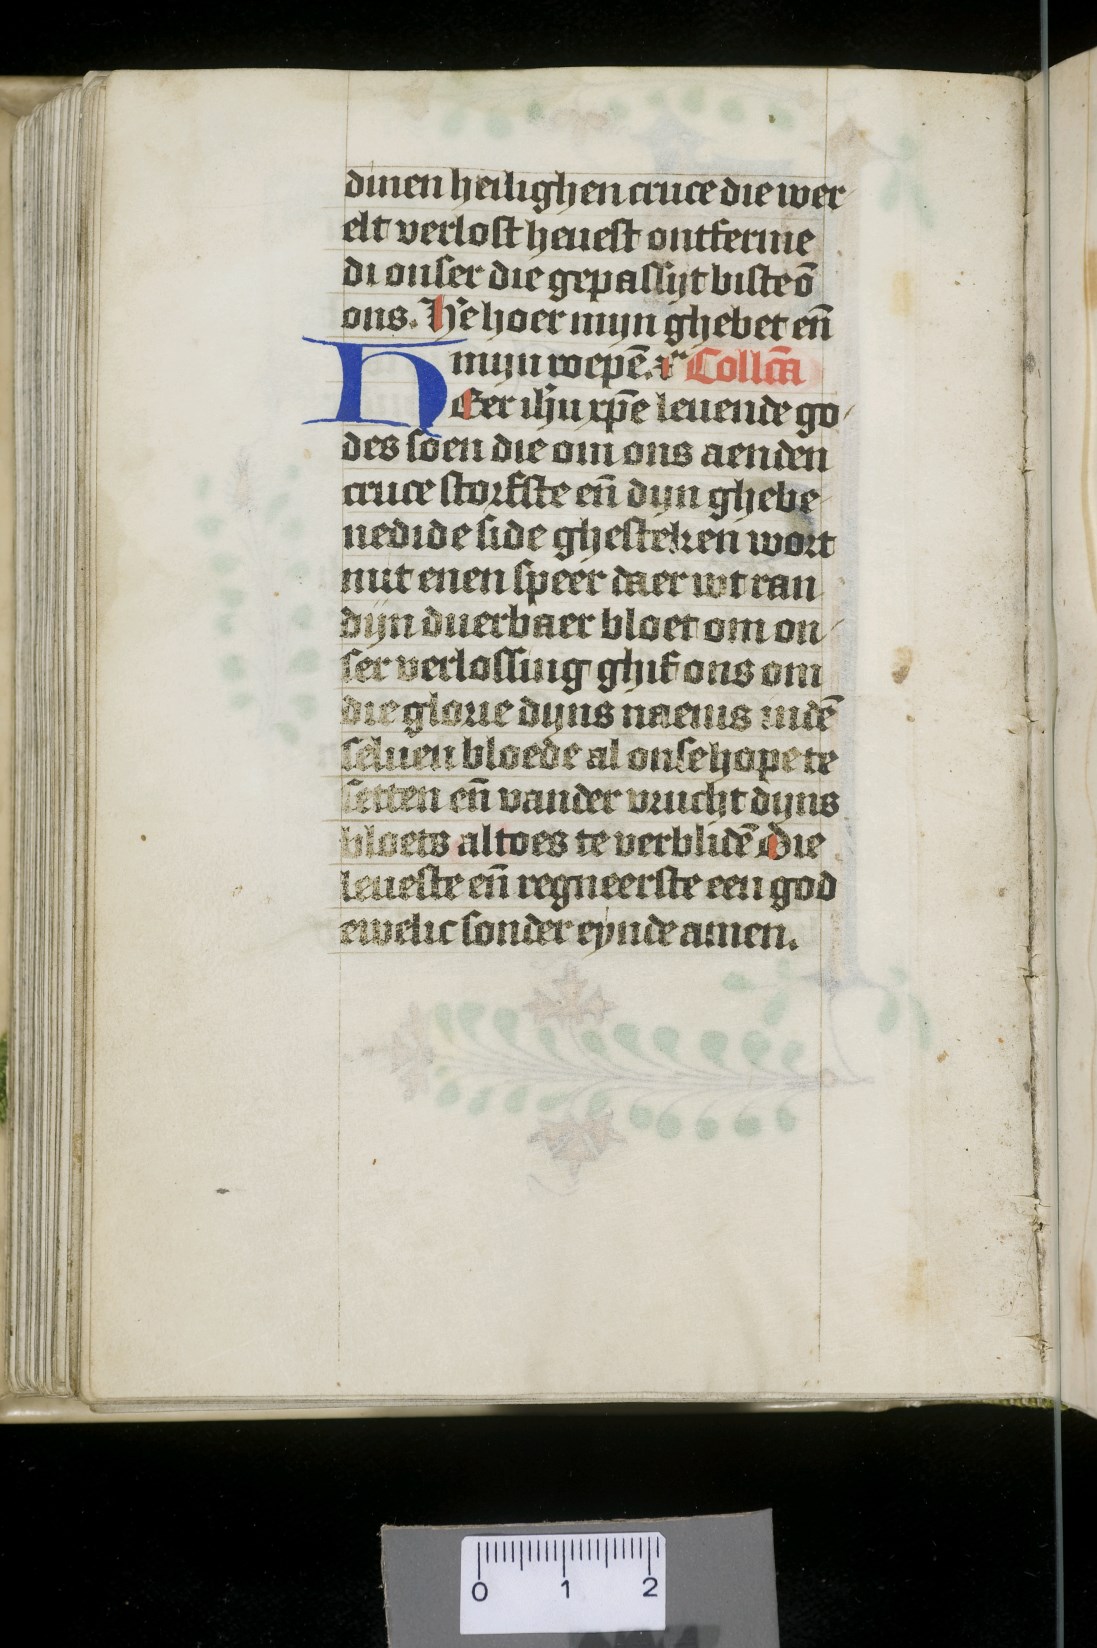 dinen heilighen cruce die wer
elt verlost heuest ontferme
di onser die gepassijt biste ō
ons. Hē hoer mijn ghebet en̄
mijn roepē. ac Collc̄a
HEer ih̄u xp̄e leuende go
des soen die om ons aenden
cruce storfste en̄ dyn ghebe
nedide side ghesteken wort
mit enen speer daer wt ran
dijn duerbaer bloet om on
ser verlossing ghif ons om
die glorie dyns naems indē
seluen bloede al onse hope te
setten en̄ vander vrucht dyns
bloets altoes te verblidē Die
leueste en̄ regneerste een god
ewelic sonder eynde amen.
0 1 2